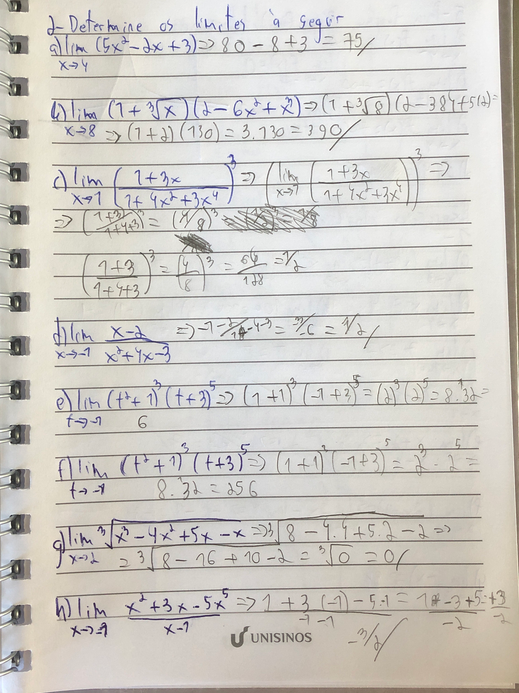 2-Determine os limites à seguir
a) lim (5x²-2x+3) => 80-8+3 = 75/
x→4
b) lim (1+∛x)(2-6x²+x³) => (1+∛8)(2-384+512)=
x→8 => (1+2)(130) = 3.130 = 390/
c) lim (1+3x / 1+4x²+3x⁴)³ => (lim x→1 (1+3x / 1+4x²+3x⁴))³ =>
x→1
=> (1+3 / 1+4+3)³ = (4/8)³
(1+3 / 1+4+3)³ = (4/8)³ = 64/128 = 1/2
d) lim x-2 / x²+4x-3 => -1-2 / 1-4-3 = -3/-6 = 1/2/
x→-1
e) lim (t²+1)³(t+3)⁵ => (1+1)³(-1+3)⁵ = (2)³(2)⁵ = 8.32=
t→-1 6
f) lim (t²+1)³(t+3)⁵ => (1+1)³(-1+3)⁵ = 2³.2⁵ =
t→-1 8.32 = 256
g) lim ∛x³-4x²+5x-x => ∛8-4.4+5.2-2 =>
x→2 = ∛8-16+10-2 = ∛0 = 0/
h) lim x²+3x-5x⁵ / x-1 => 1+3(-1)-5.1 / -1-1 = 1-3+5 / -2 = +3 / -2
x→-1 -3/2/
UNISINOS